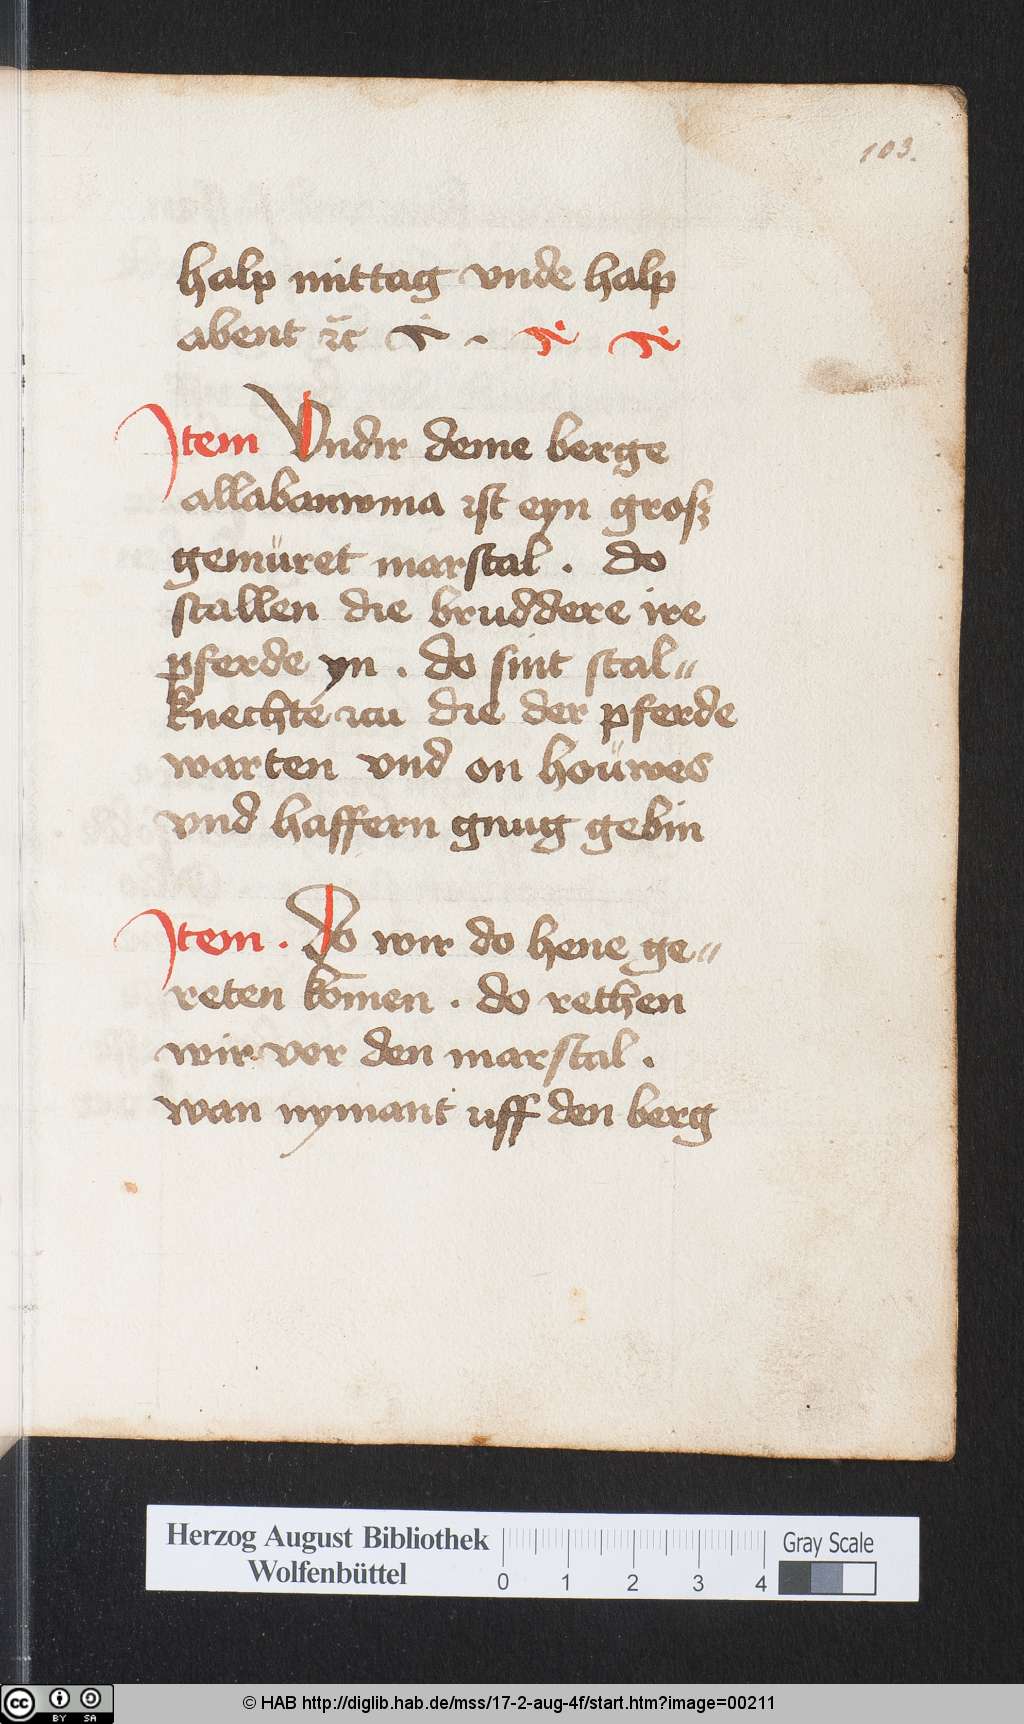 103.
halp mittag vnde halp
abent ꝛc̄
Item Vndir deme berge
allabauwma ist eyn grosz
gemüret marstal . do
stallen die bruddere ire
pferde yn . do sint stal„
knechte zcu die der pferde
warten vnd on houwes
vnd haffern gnug gebin
Item . Do wir do hene ge„
reten komen . do rethen
wir vor den marstal .
wan nymant uff den berg
Herzog August Bibliothek
Wolfenbüttel
0 1 2 3 4
Gray Scale
cc BY SA
© HAB http://diglib.hab.de/mss/17-2-aug-4f/start.htm?image=00211